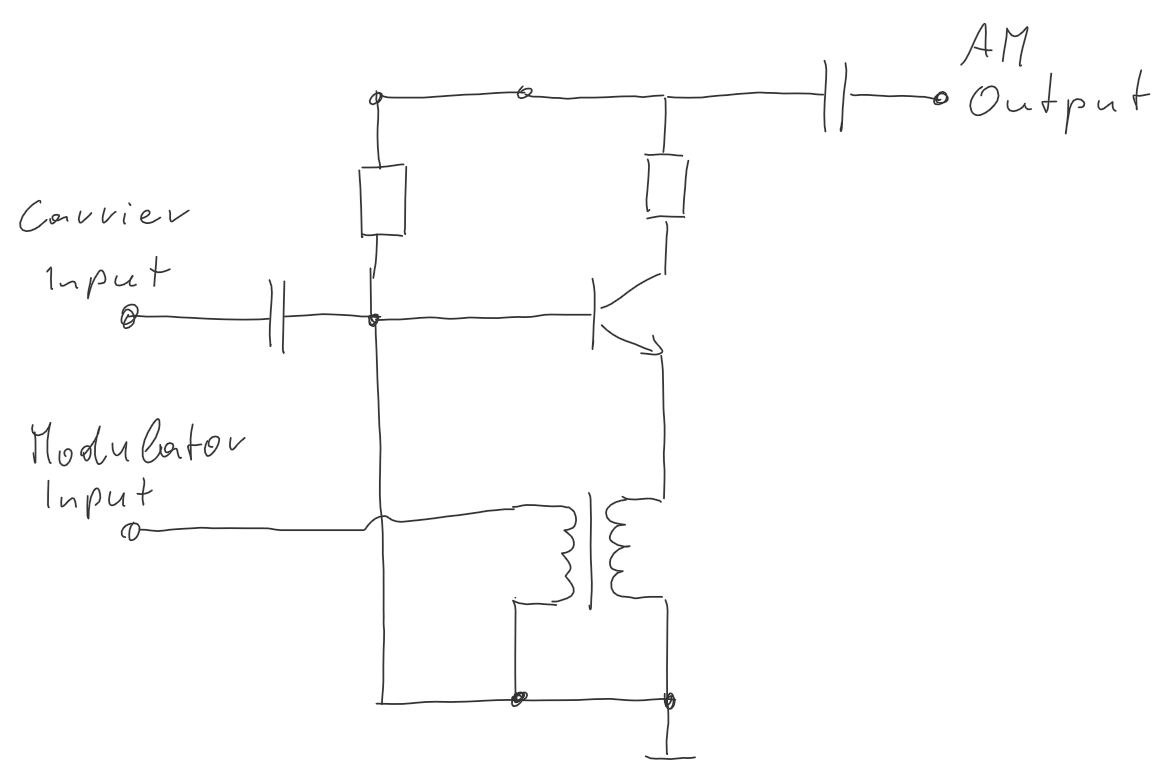 AM
Output
Carrier
Input
Modulator
Input